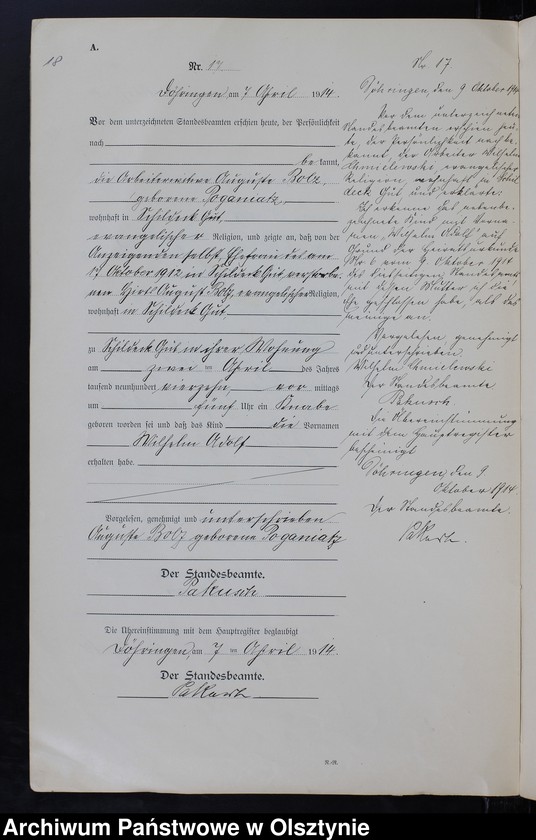 18
A.
Nr. 17
Döhringen, am 7 April 1914.
Vor dem unterzeichneten Standesbeamten erschien heute, der Persönlichkeit
nach
be kannt,
die Arbeiterwitwe Auguste Bolz,
geborene Poganiatz,
wohnhaft in Schildeck Gut
evangelischer Religion, und zeigte an, daß von der
Anzeigenden selbst, Ehefrau des am
17 Oktober 1912 in Schildeck Gut verstorbe-
nen Hirts August Bolz, evangelischer Religion,
wohnhaft in Schildeck Gut
zu Schildeck Gut in ihrer Wohnung
am zwei ten April des Jahres
tausend neunhundert vierzehn, vor mittags
um fünf Uhr ein Knabe
geboren worden sei und daß das Kind die Vornamen
Wilhelm Adolf
erhalten habe.
Vorgelesen, genehmigt und unterschrieben
Auguste Bolz geborene Poganiatz
Der Standesbeamte.
Pakusch
Die Übereinstimmung mit dem Hauptregister beglaubigt
Döhringen, am 7 ten April 1914.
Der Standesbeamte.
No 17.
Döhringen, den 9 Oktober 1914
Vor dem unterzeichneten
Standesbeamten erschien heu-
te, der Persönlichkeit nach be-
kannt, der Arbeiter Wilhelm
Chmielewski, evangelischer
Religion, wohnhaft in Schil-
deck Gut und erklärte:
Ich erkenne das nebenbe-
zeichnete Kind mit Vorna-
men, Wilhelm Adolf auf
Grund der Heiratsurkunde
No 6 vom 9 Oktober 1914
des diesseitigen Standesamts
mit dessen Mutter ich die
Ehe geschlossen habe, als das
meinige an.
Vorgelesen, genehmigt
und unterschrieben
Wilhelm Chmielewski
Der Standesbeamte
Pakusch
Die Übereinstimmung
mit dem Hauptregister
bescheinigt
Döhringen, den 9
Oktober 1914
Der Standesbeamte.
Archiwum Państwowe w Olsztynie